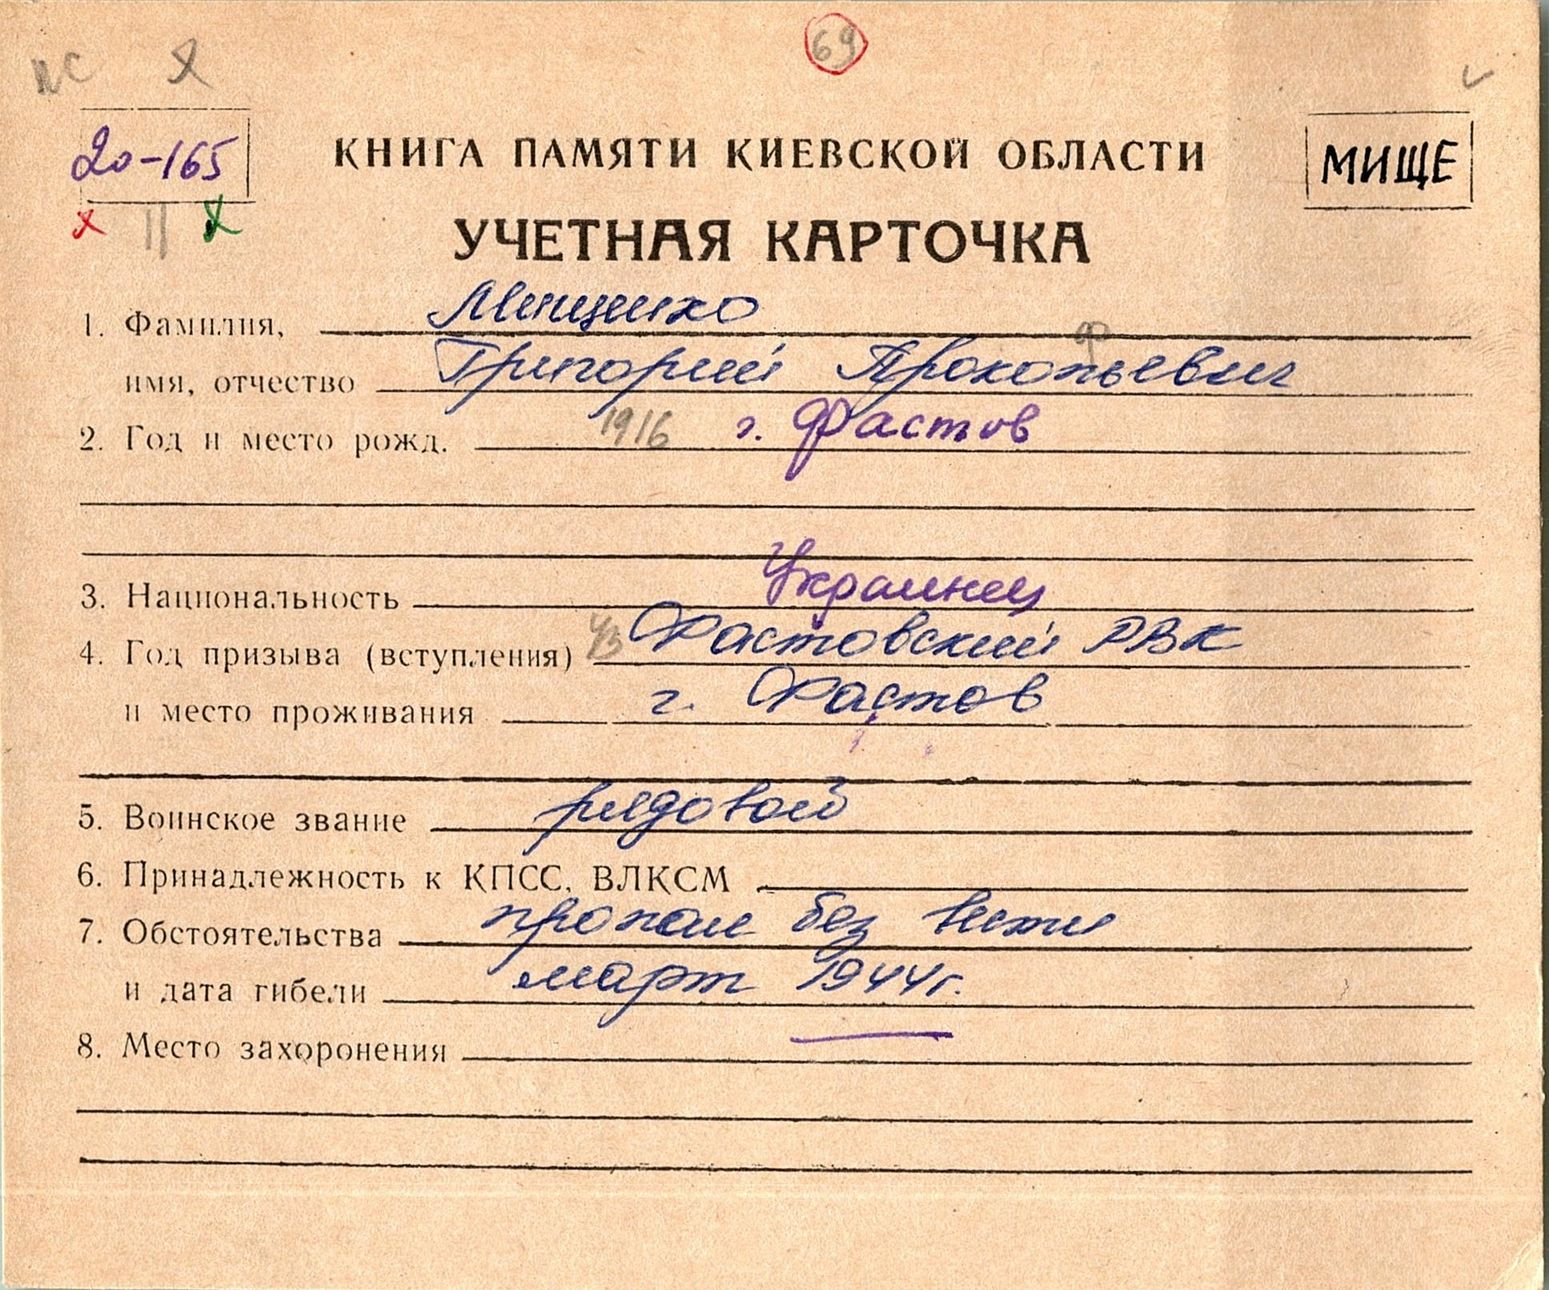 69
20-165
КНИГА ПАМЯТИ КИЕВСКОЙ ОБЛАСТИ
МИЩЕ
УЧЕТНАЯ КАРТОЧКА
1. Фамилия, Мищенко
ф
имя, отчество Григорий Прокопьевич
2. Год и место рожд. 1916 г. Фастов
3. Национальность Украинец
4. Год призыва (вступления) 43 Фастовский РВК
и место проживания г. Фастов
5. Воинское звание рядовой
6. Принадлежность к КПСС, ВЛКСМ
7. Обстоятельства пропал без вести
и дата гибели март 1944г.
8. Место захоронения